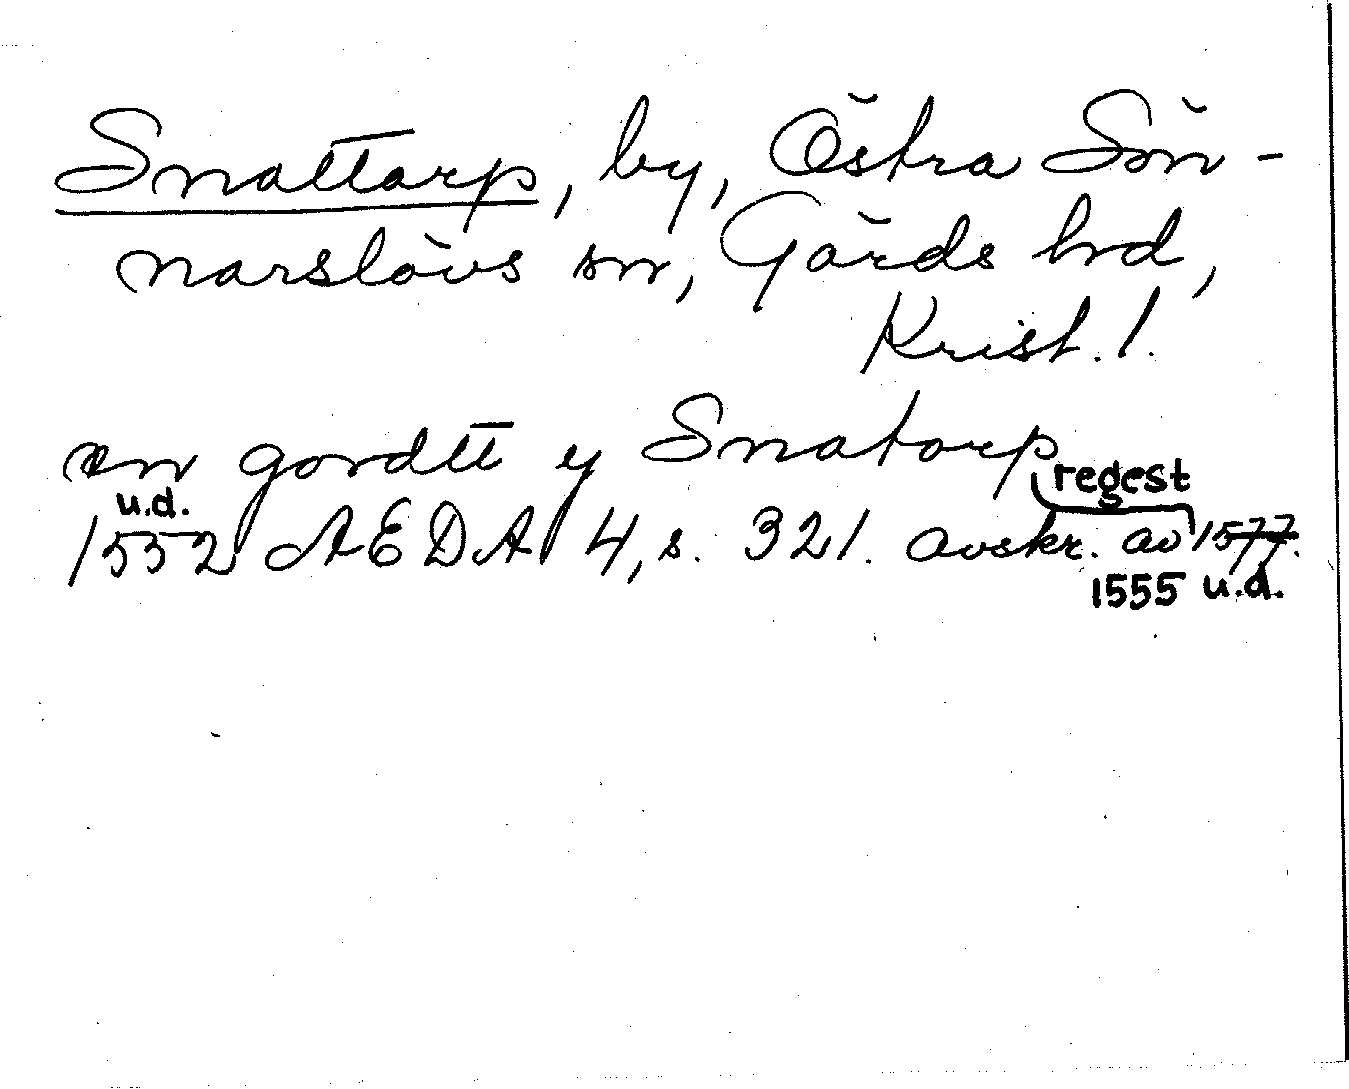 Snattarp, by, Östra Sön-
narslövs sn, Gärds hd,
Krist. l.
en gordtt y Snatorp
regest
u.d.
1552 AEDA 4, s. 321. avskr. av 1577.
1555 u.d.